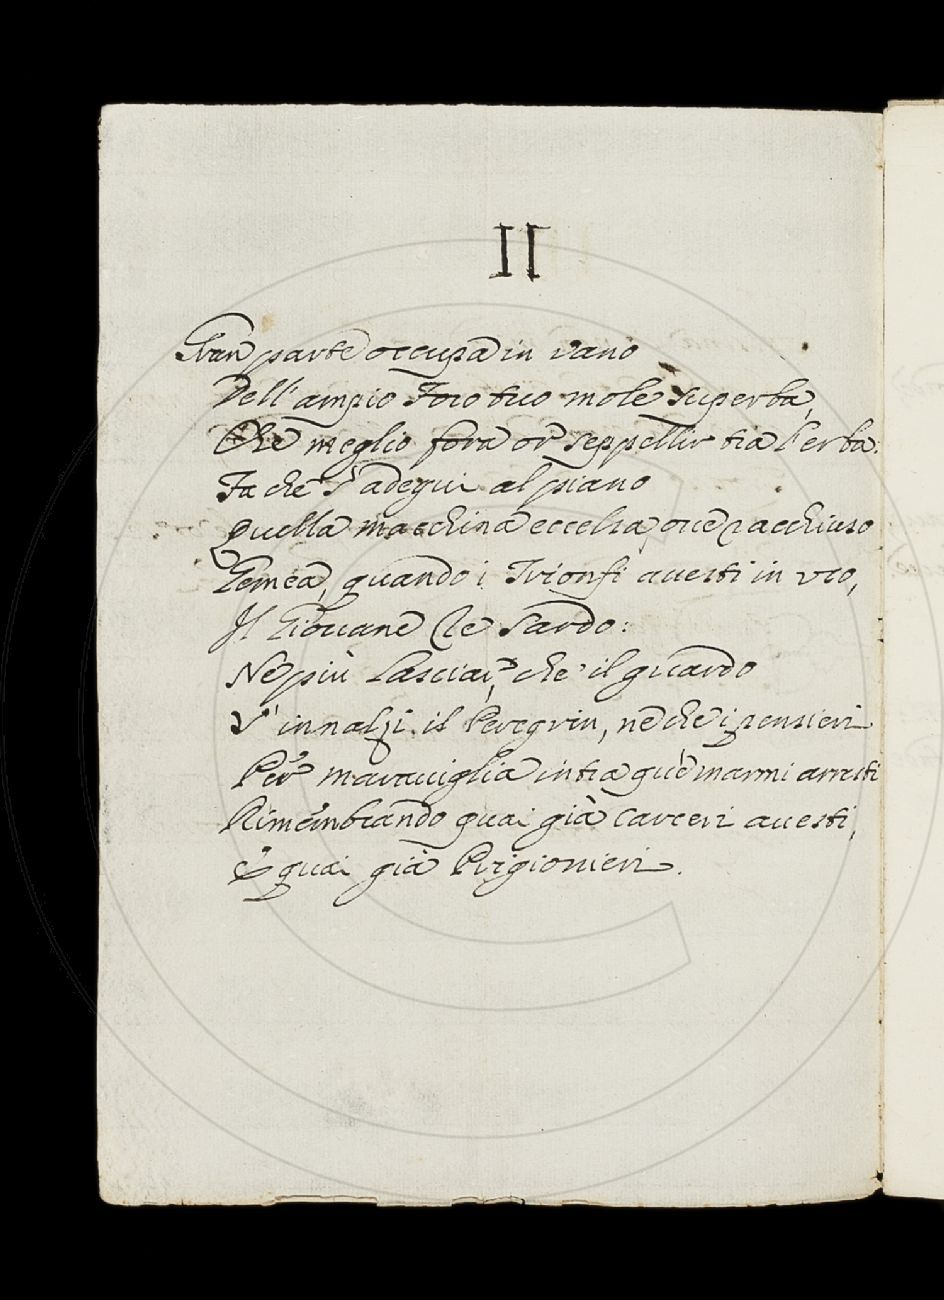 II
Gran parte occupa in vano
Dell'ampio Foro tuo mole superba,
Che meglio fora or seppellir tra l'erba:
Fa che s'adegui al piano
Quella macchina eccelsa, ove racchiuso
Gemea, quando i Trionfi avesti in uso,
Il Giovane Re Sardo:
Ne più lasciar, che il guardo
V'innalzi il Peregrin, ne che i pensieri
Per maraviglia intra que' marmi arresti
Rimembrando quai già carceri avesti,
E quai già Prigionieri.